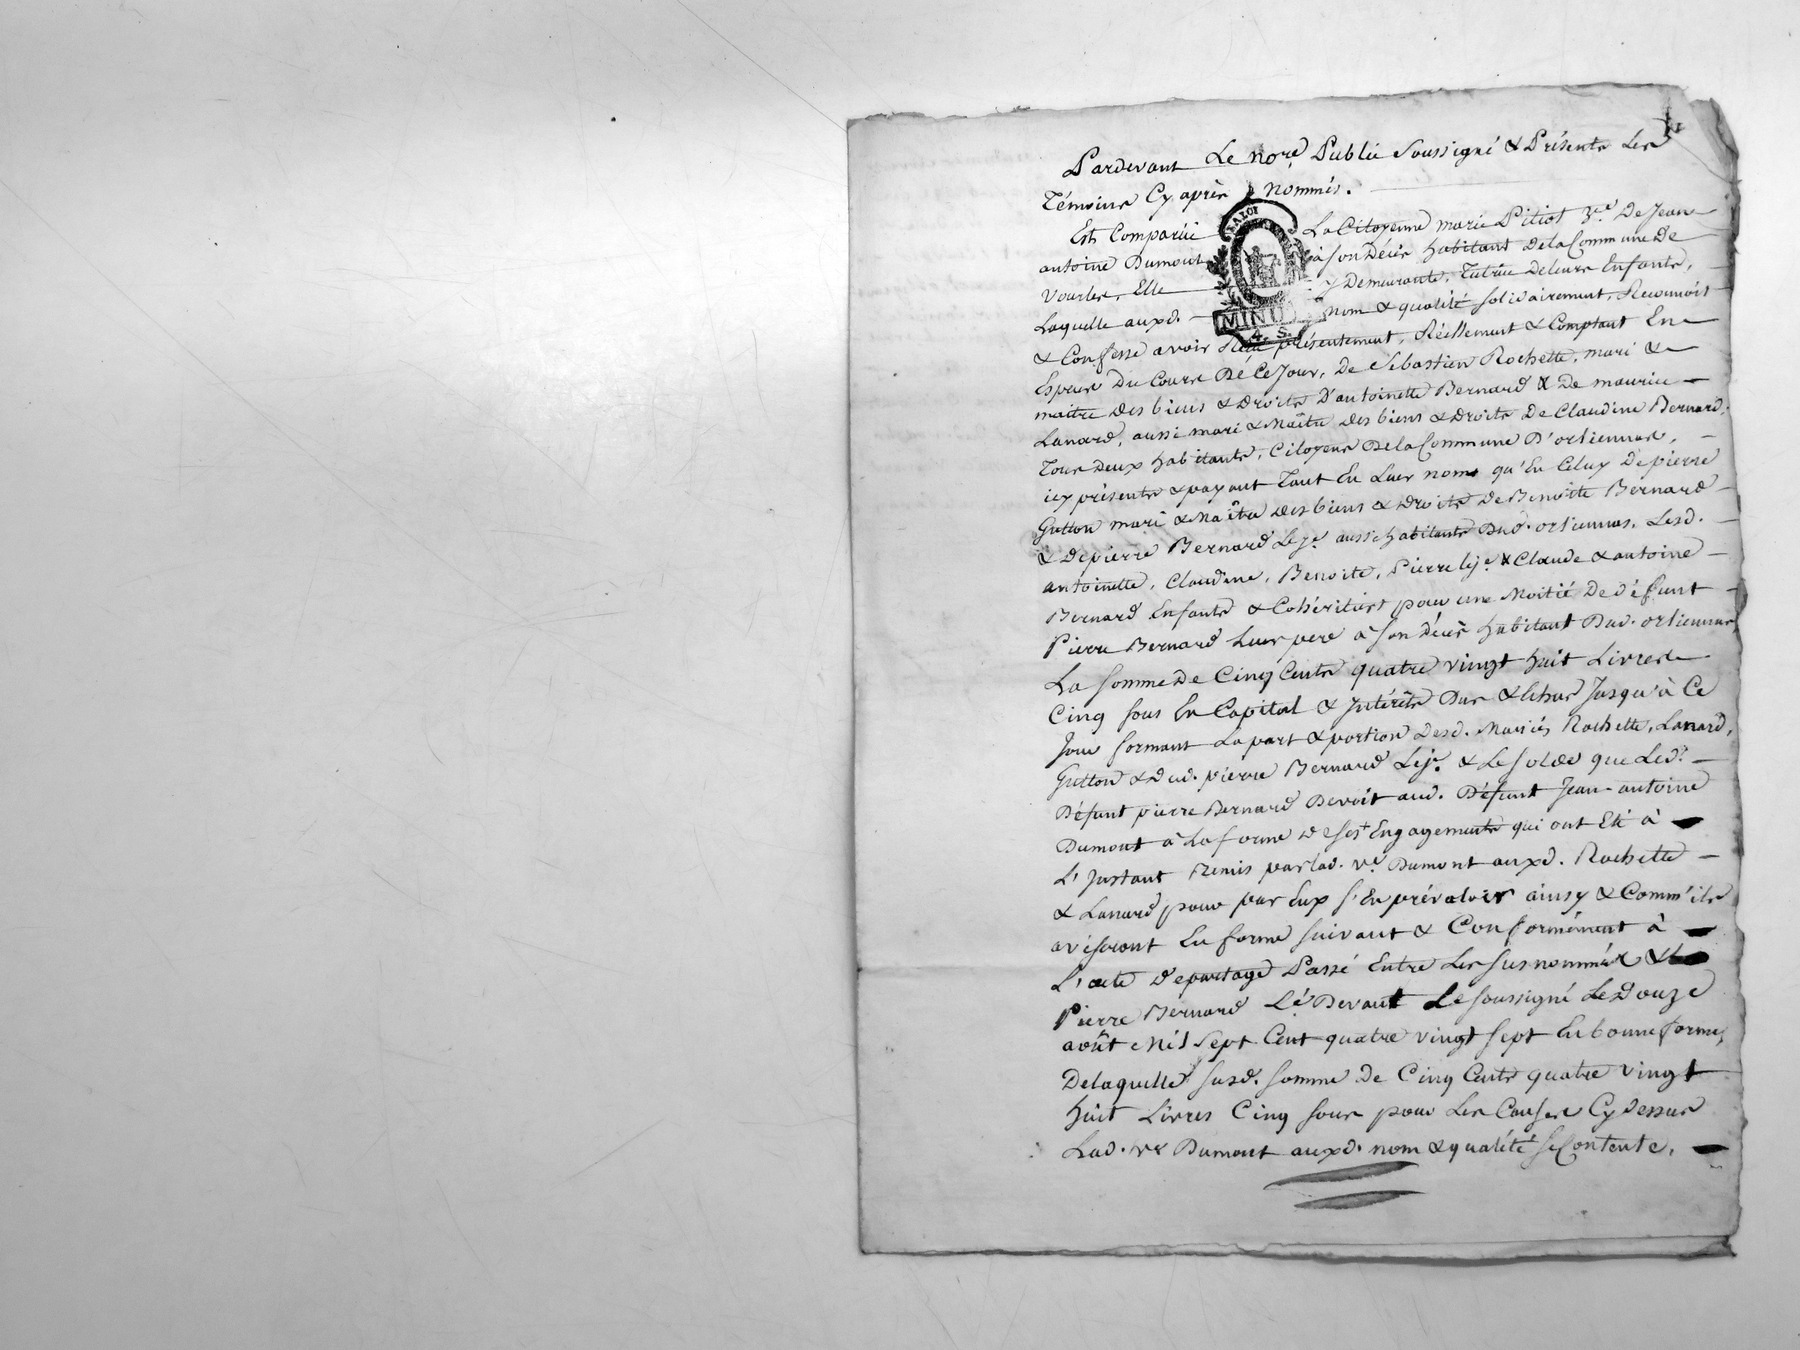 Pardevant Le no.re Public Soussigné & Présents Les
Témoins Cy après nommés.
Est Comparüe La Citoyenne marie Pitiot v.e De Jean
antoine Dumont à son Décès habitant de la Commune De
Vourles, Elle y Demeurante, Tutrice de leurs Enfants,
Laquelle auxd. nom & qualité solidairement, Reconnoit
& Confesse avoir Reçu présentement, Réellement & Comptant En
Espèces Du Cours De Ce Jour, De Sébastien Rochette, mari &
maitre des biens & Droits D'antoinette Bernard & De maurice
Lanard, aussi mari & Maître des biens & Droits De Claudine Bernard,
Tous Deux habitants, Citoyens De la Commune D'orliennas,
icy présents & payant Tant En Leur noms qu'En Celuy De pierre
Gutton mari & Maître des biens & droits De Benoite Bernard
& De pierre Bernard Le j.e aussi habitants Dud. orliennas, Lesd.
antoinette, Claudine, Benoite, Pierre le j.e & Claude & antoine
Bernard Enfants & Cohéritiers pour une Moitié De défunt
Pierre Bernard Leur pere à son décès habitant Dud. orliennas,
La somme De Cinq Cents quatre vingt huit Livres
Cinq sous En Capital & Intérêts Dus & Echus Jusqu'à Ce
Jour formant La part & portion Desd. Mariés Rochette, Lanard,
Gutton & Dud. pierre Bernard Le j.e & Le solde que Led.
Défunt pierre Bernard Devoit aud. Défunt Jean-antoine
Dumont à La forme de ses Engagements qui ont Eté à
L'Instant Remis par lad. v.e Dumont auxd. Rochette
& Lanard pour par Eux s'En prévaloir ainsy & Comm'ils
aviseront En forme suivant & Conformément à
L'acte De partage Passé Entre Les susnommés &
Pierre Bernard L'é Devant Le soussigné Le Douze
août Mil Sept Cent quatre vingt sept En bonne forme,
De laquelle susd. somme De Cinq Cents quatre vingt
huit Livres Cinq sous pour Les Causes Cy dessus
Lad. v.e Dumont auxd. nom & qualité se Contente,
MINU